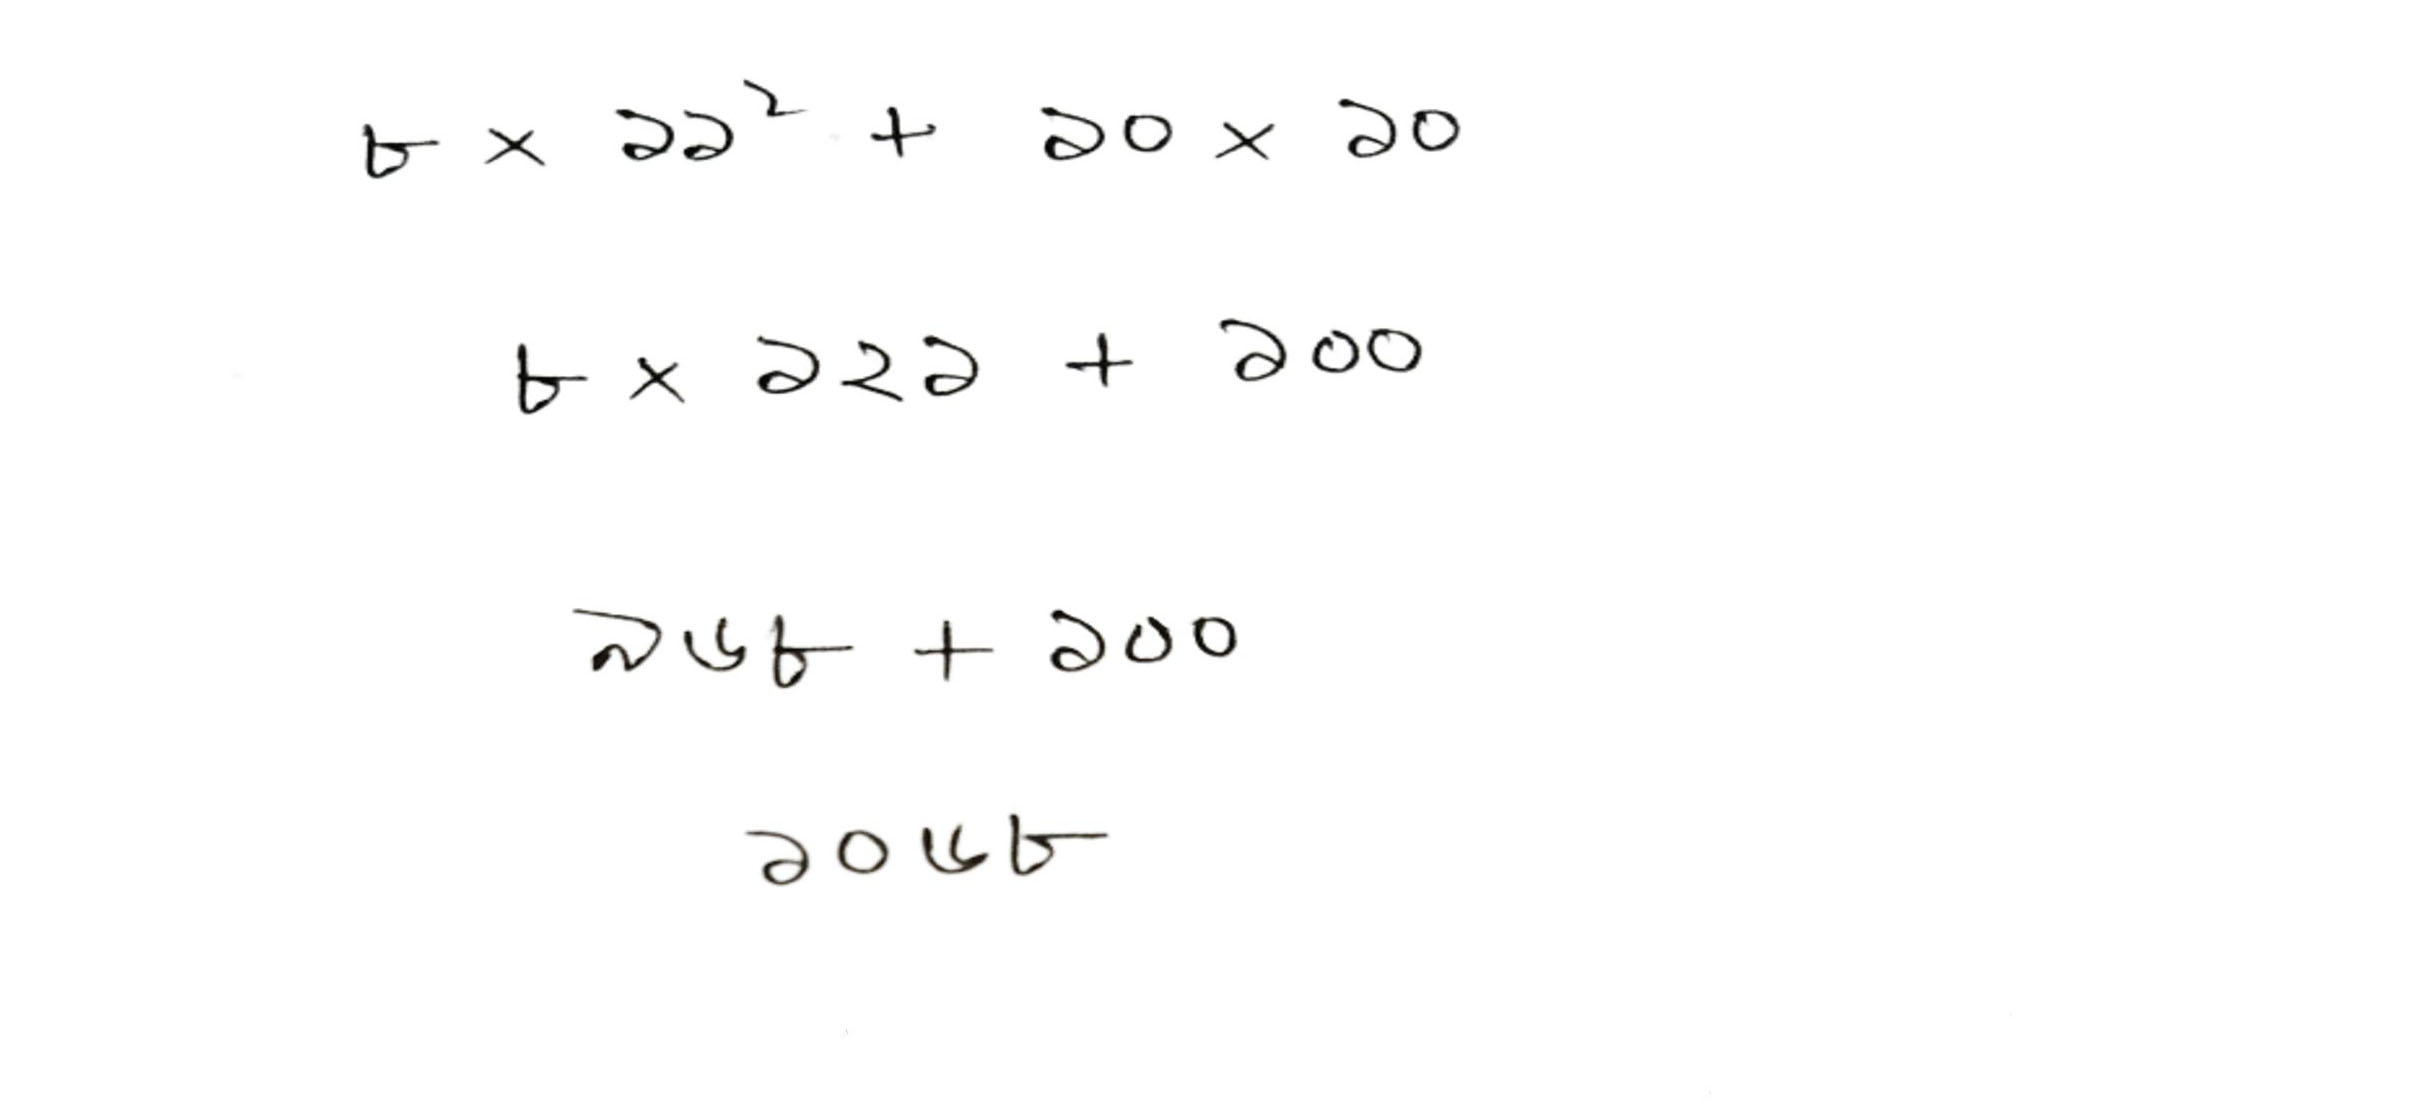 ৮ × ১১² + ১০ × ১০
৮ × ১২১ + ১০০
৯৬৮ + ১০০
১০৬৮